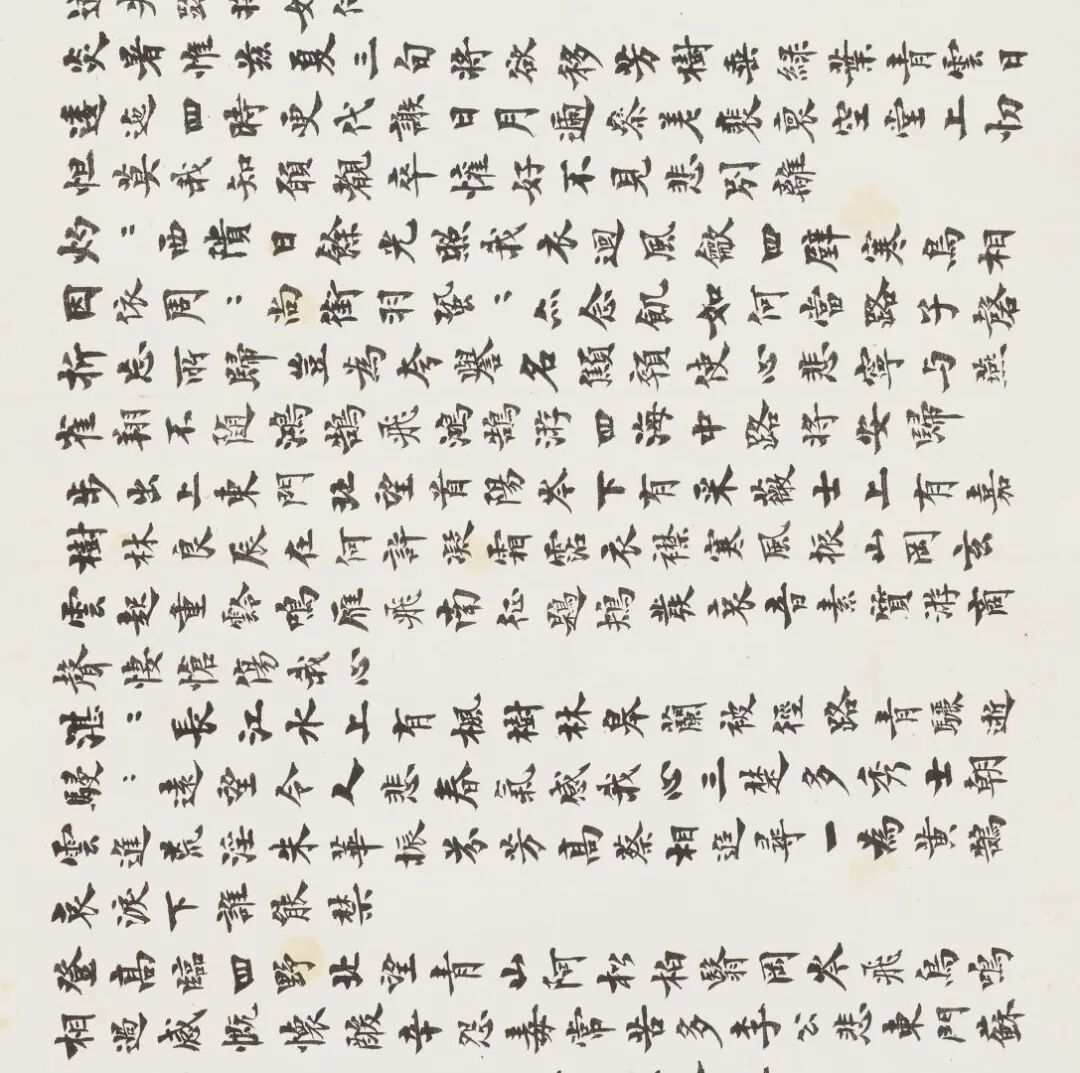 炎暑惟兹夏三旬將欲移芳樹垂綠葉青雲日
逶迤四時更代謝日月遞參差裴哀空堂上忉
怛莫我知願覩卒懽好不見悲別離
灼〻西隤日餘光照我衣迴風歙四壁寒鳥相
因依周〻尚銜羽蛩〻亦念飢如何當路子磬
折忘所歸豈為夸譽名顦顇使心悲寧与燕
雀翔不隨鴻鵠飛鴻鵠游四海中路將安歸
步出上東門北望首陽岑下有采薇士上有嘉
樹林良辰在何許凝霜霑衣襟寒風振山岡玄
雲起重霒鳴雁飛南征鶗鴂發哀音素質游商
聲悽愴傷我心
湛〻長江水上有楓樹林皋蘭被徑路青驪逝
駸〻遠望令人悲春氣感我心三楚多秀士朝
雲進荒淫朱華振芬芳高蔡相追尋一為黃鵠
哀淚下誰能禁
登高臨四野北望青山阿松柏翳岡岑飛鳥鳴
相過感慨懷酸辛怨毒常苦多李公悲東門蘇